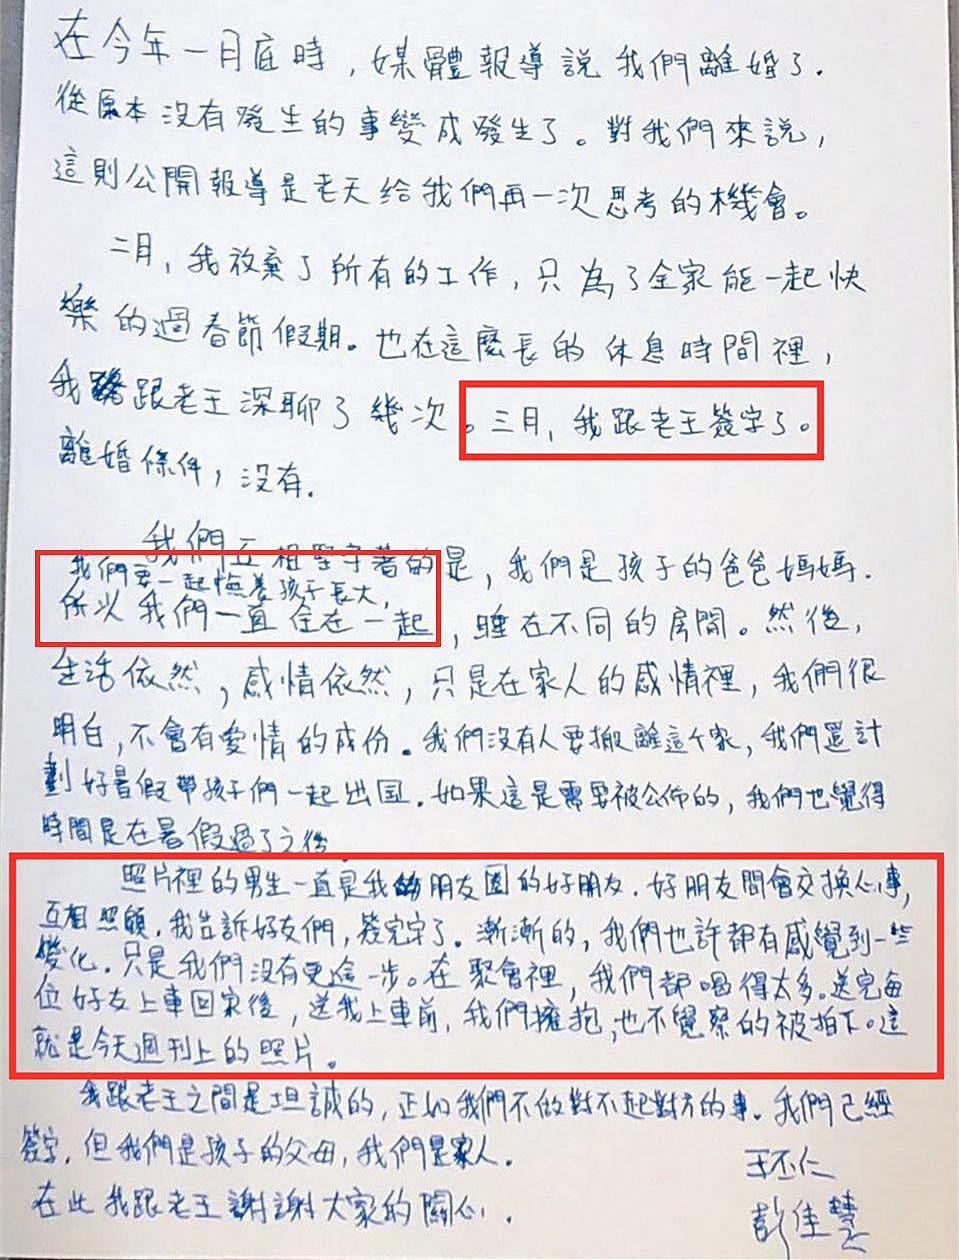 在今年一月底時，媒體報導說我們離婚了．
從原本沒有發生的事變成發生了。對我們來說，
這則公開報導是老天給我們再一次思考的機會。
二月，我放棄了所有的工作，只為了全家能一起快
樂的過春節假期。也在這麼長的休息時間裡，
我跟老王深聊了幾次。三月，我跟老王簽字了。
離婚條件，沒有．
我們互相堅守著的是，我們是孩子的爸爸媽媽．
我們要一起撫養孩子長大，
所以我們一直住在一起，睡在不同的房間。然後，
生活依然，感情依然，只是在家人的感情裡，我們很
明白，不會有愛情的成份。我們沒有人要搬離這个家，我們還計
劃好暑假帶孩子們一起出国．如果這是需要被公佈的，我們也覺得
時間是在暑假過了之後．
照片裡的男生一直是我朋友圈的好朋友．好朋友間會交換心事，
互相照顧．我告訴好友們，簽完字了。漸漸的，我們也許都有感覺到一些
變化．只是我們沒有更進一步。在聚會裡，我們都喝得太多。送完每
位好友上車回家後，送我上車前，我們擁抱，也不覺察的被拍下。這
就是今天週刊上的照片。
我跟老王之間是坦誠的，正如我們不做對不起對方的事．我們已經
簽字，但我們是孩子的父母，我們是家人．
在此我跟老王謝謝大家的關心．
王丕仁
彭佳慧